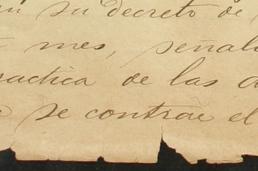 su decreto de
mes, señal
practica de las
se contrae el